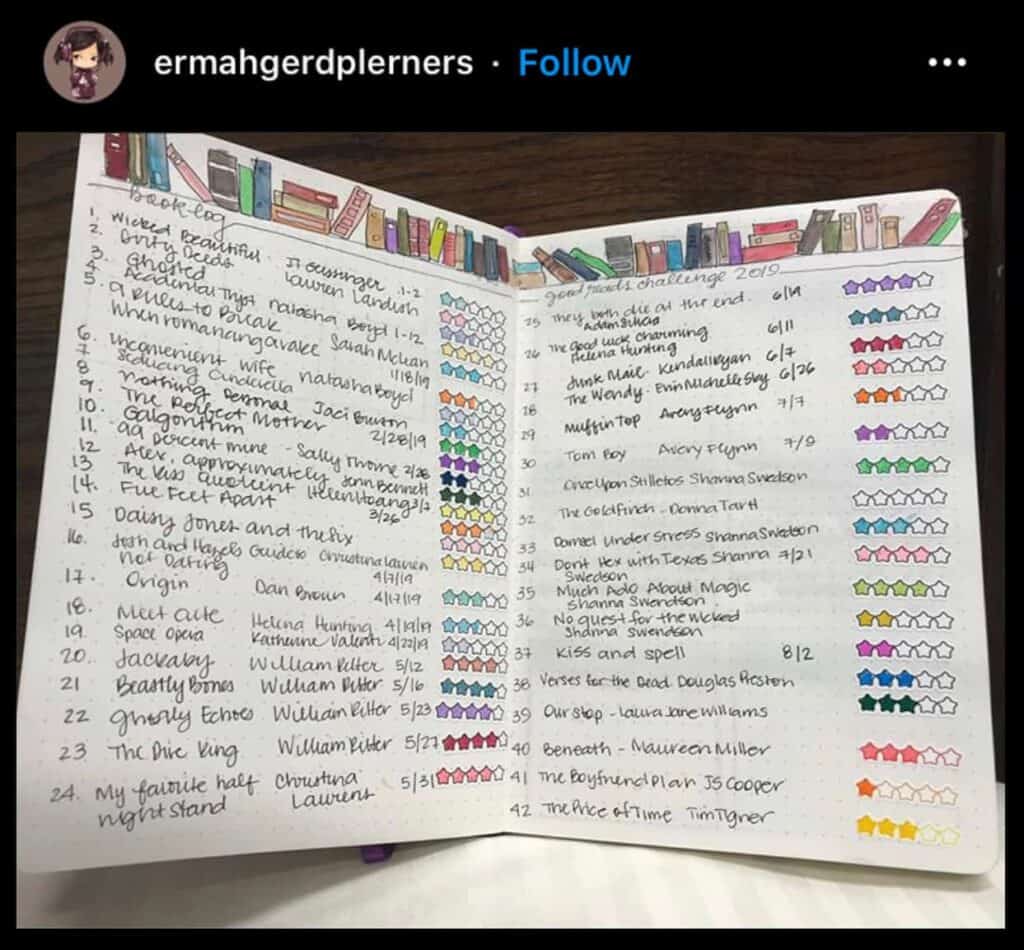 ermahgerdplerners · Follow
Book log
1. Wicked Beautiful - JT Geissinger 1-2
2. Dirty Deeds Lauren Landish
3. Ghosted
4. Accidental Tryst natasha Boyd 1-12
5. 9 Rules to Break
When romancing a rake Sarah Mclean
1/18/19
6. Inconvenient Wife natasha Boyd
7 Seducing Cinderella
8 Nothing Personal Jaci Burton
9. The Perfect Mother 2/28/19
10. Galgorithm
11. 99 percent mine - Sally Thorne 2/28
12 Alex, approximately Jenn Bennett
13 The Kiss Quotient Helen Hoang 3/2
14. Five Feet Apart 3/26
15 Daisy Jones and the Six
16. Josh and Hazels Guide to Christina Lauren
Not Dating 4/7/19
17. Origin Dan Brown 4/17/19
18. Meet Cute Helena Hunting 4/19/19
19. Space Opera Katherine Valenti 4/22/19
20. Jackaby William Ritter 5/12
21 Beastly Bones William Ritter 5/16
22 Ghostly Echoes William Ritter 5/23
23 The Dire King William Ritter 5/27
24. My favorite half Christina 5/31
night stand Laurens
good reads challenge 2019
25 They both die at the end. 6/9
Adam Silvera
26 The good luck charming 6/11
Helena Hunting
27 Junk Male - Kendall Ryan 6/7
28 The Wendy - Erin Michelle Sky 6/26
29 Muffin Top Avery Flynn 7/7
30 Tom Boy Avery Flynn 7/9
31 Once Upon Stilletos Shanna Swedson
32 The Goldfinch - Donna Tartt
33 Damsel Under Stress Shanna Swedson
34 Dont Hex with Texas Shanna 7/21
Swedson
35 Much Ado About Magic
Shanna Swendson
36 No quest for the wicked
Shanna swendson
37 Kiss and spell 8/2
38 Verses for the Dead Douglas Preston
39 Our stop - Laura Jane Williams
40 Beneath - Maureen Miller
41 The Boyfriend Plan JS Cooper
42 The Price of Time Tim Tigner